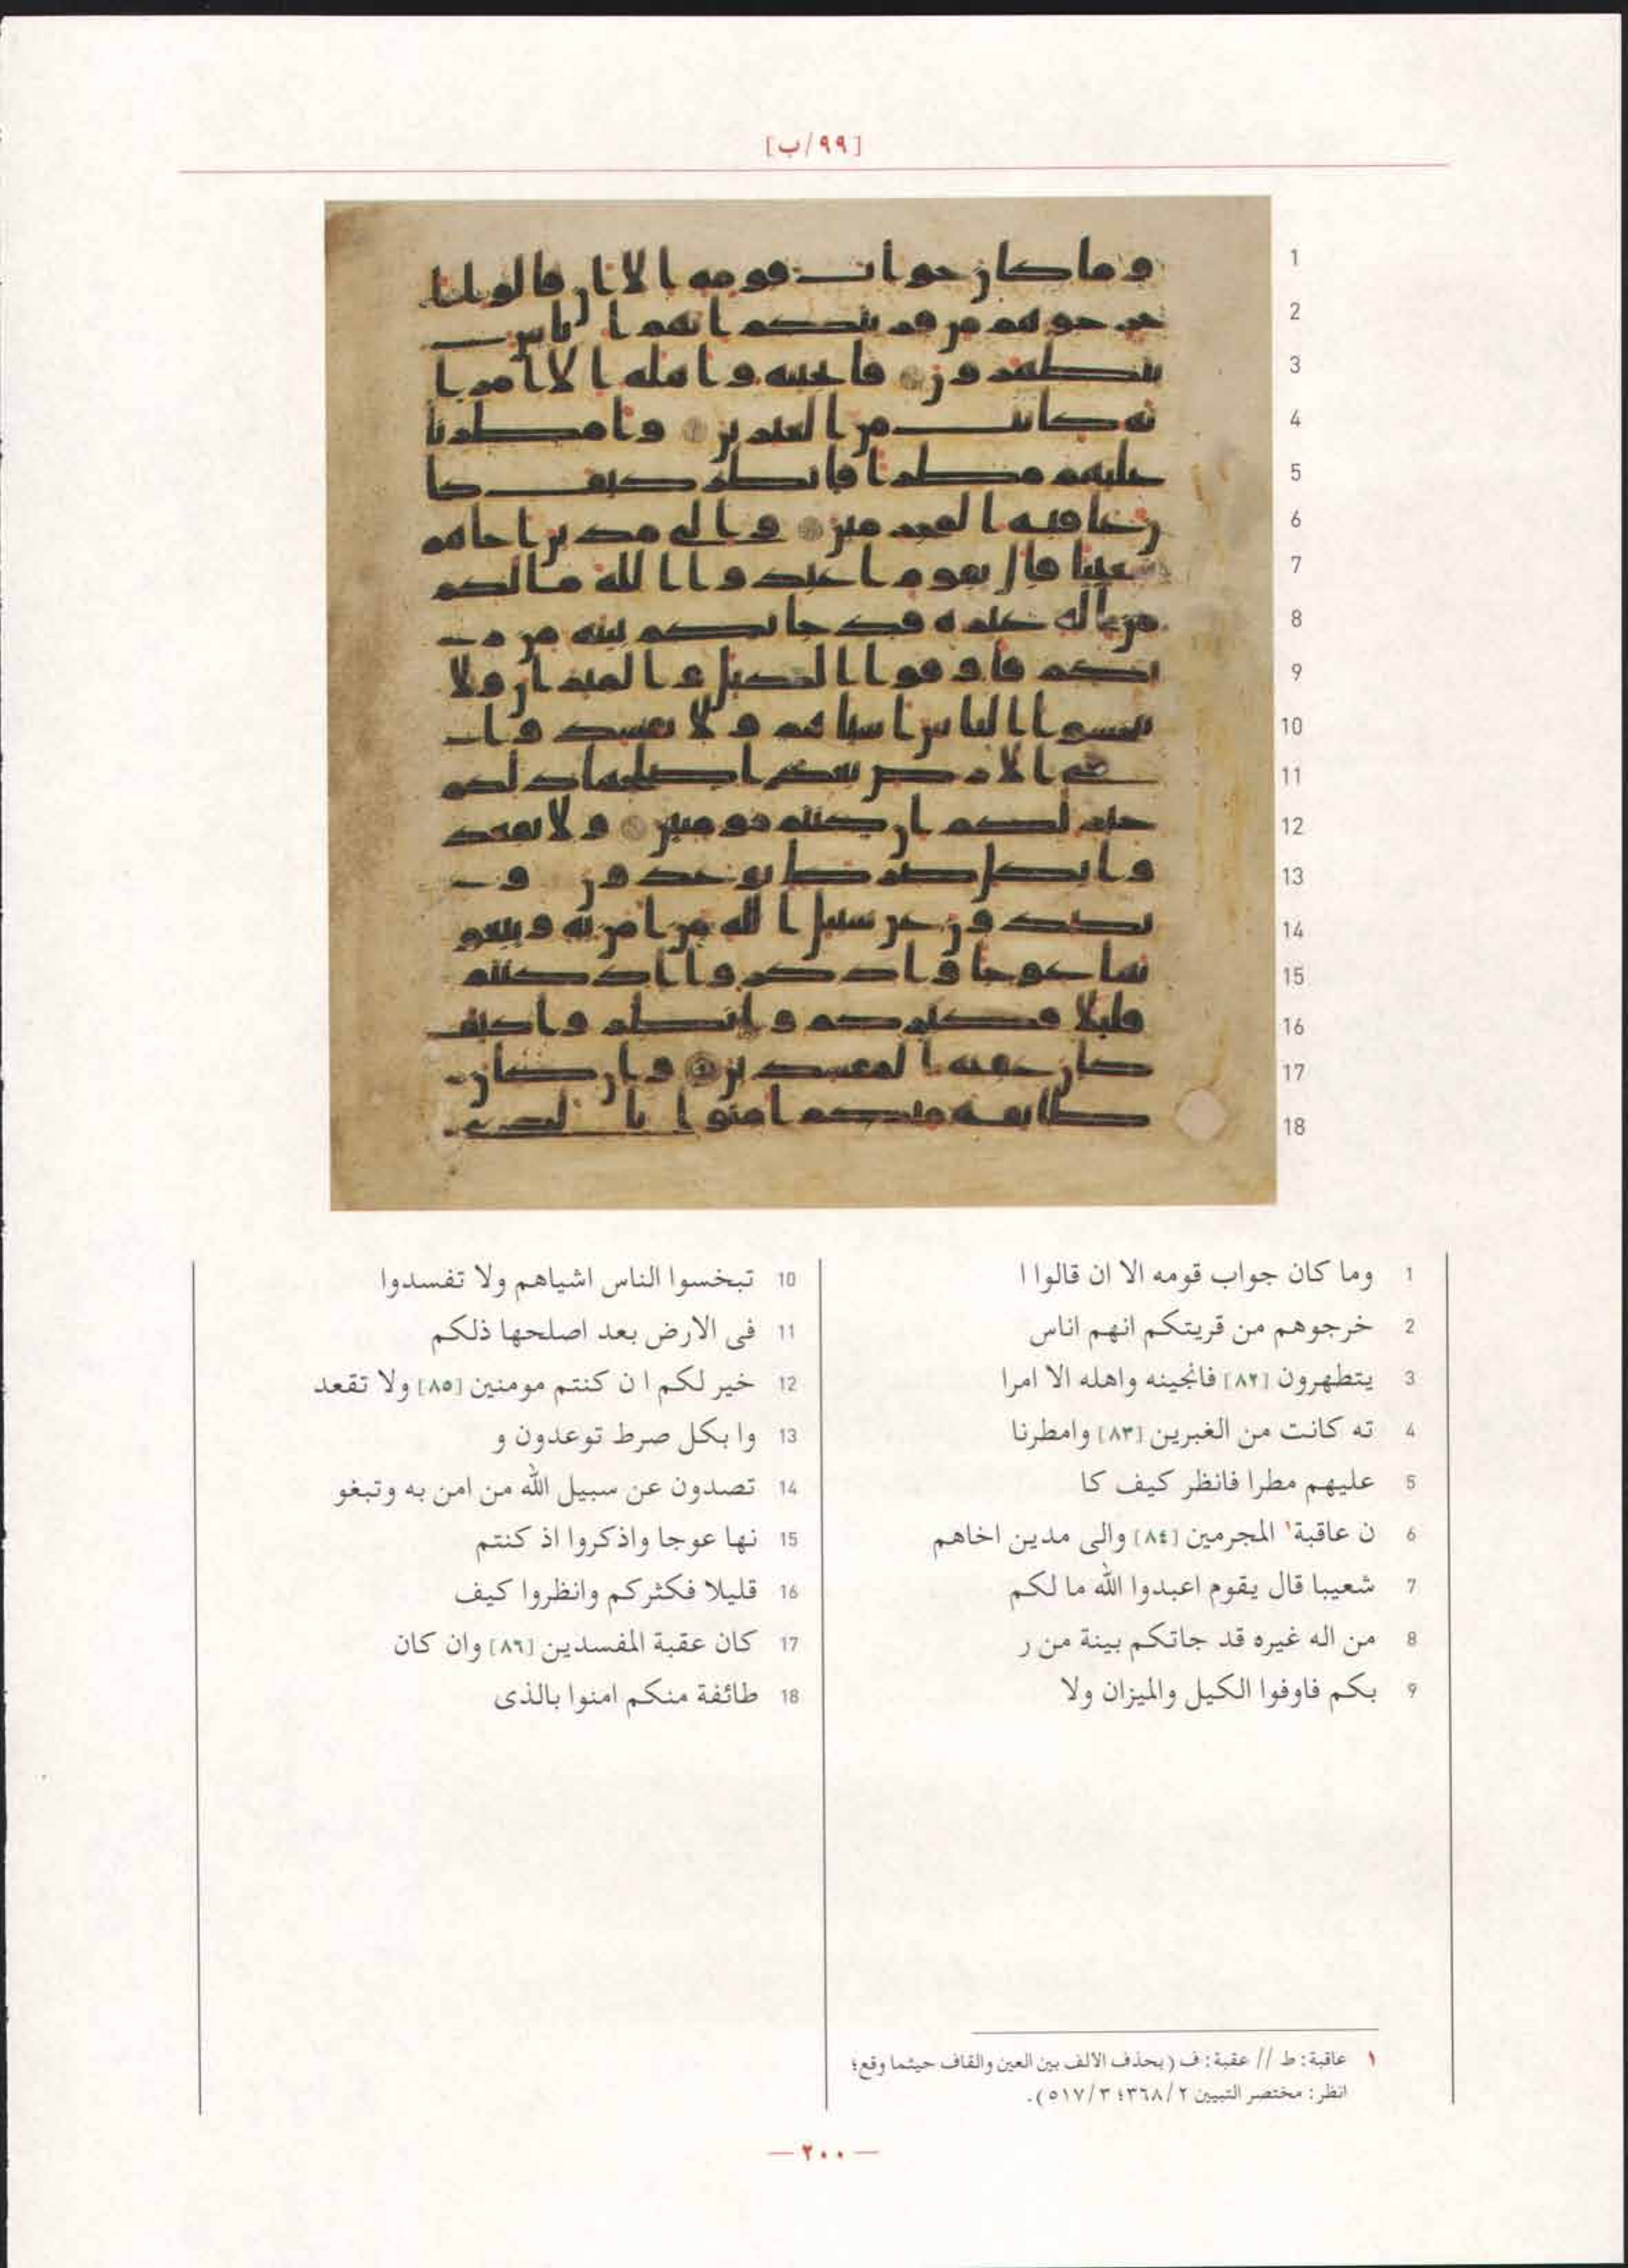 [٩٩/ب]
1 وما كان جواب قومه الا ان قالوا ا
2 خرجوهم من قريتكم انهم اناس
3 يتطهرون [٨٢] فانجينه واهله الا امرا
4 ته كانت من الغبرين [٨٣] وامطرنا
5 عليهم مطرا فانظر كيف كا
6 ن عاقبة١ المجرمين [٨٤] والى مدين اخاهم
7 شعيبا قال يقوم اعبدوا الله ما لكم
8 من اله غيره قد جاتكم بينة من ر
9 بكم فاوفوا الكيل والميزان ولا
10 تبخسوا الناس اشياهم ولا تفسدوا
11 فى الارض بعد اصلحها ذلكم
12 خير لكم ا ن كنتم مومنين [٨٥] ولا تقعد
13 وا بكل صرط توعدون و
14 تصدون عن سبيل الله من امن به وتبغو
15 نها عوجا واذكروا اذ كنتم
16 قليلا فكثركم وانظروا كيف
17 كان عقبة المفسدين [٨٦] وان كان
18 طائفة منكم امنوا بالذى
١ عاقبة: ط // عقبة: ف (بحذف الالف بين العين والقاف حيثما وقع؛
انظر: مختصر التبيين ٣٦٨/٢؛ ٥١٧/٣).
— ٢٠٠ —